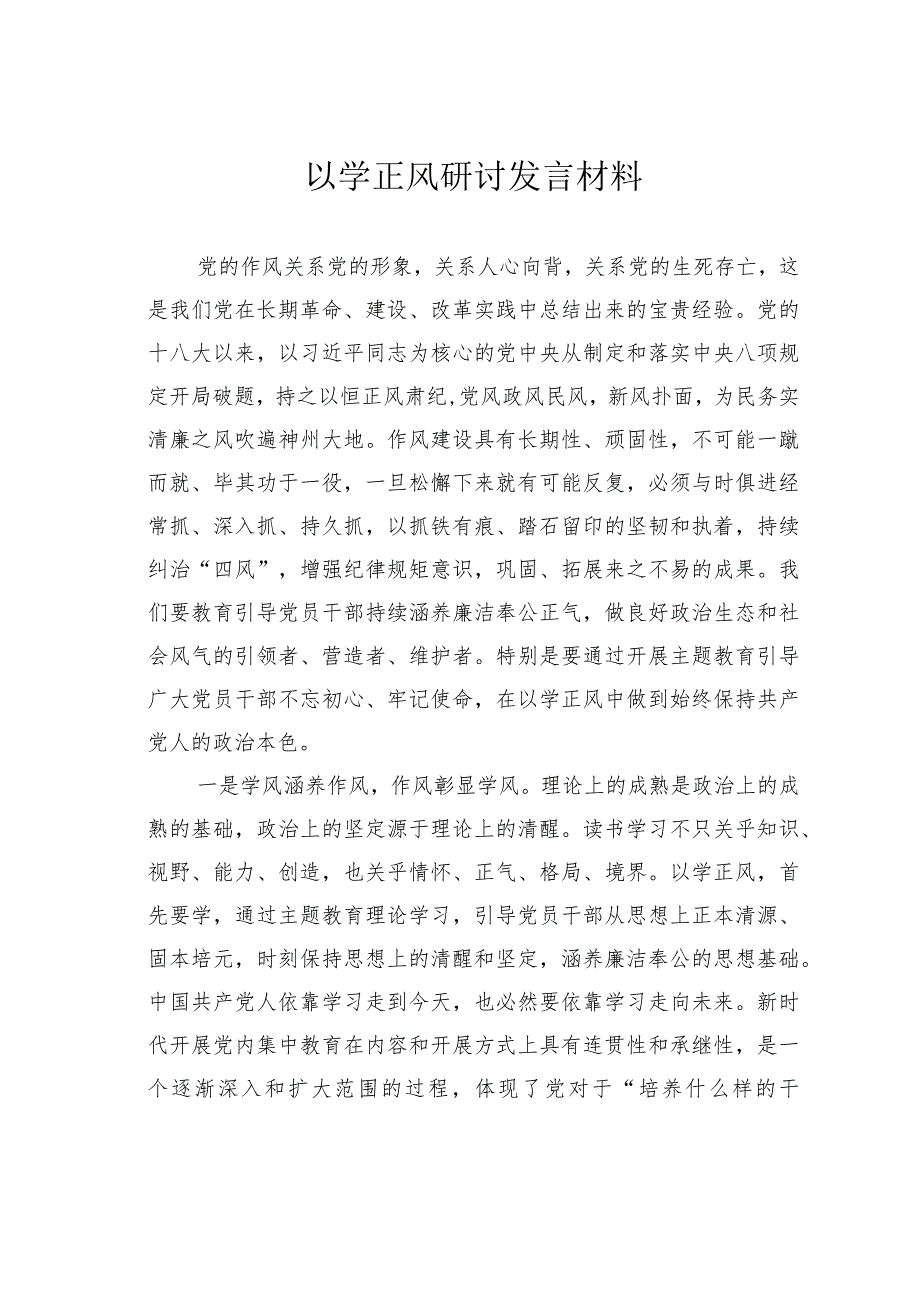 以学正风研讨发言材料
党的作风关系党的形象，关系人心向背，关系党的生死存亡，这
是我们党在长期革命、建设、改革实践中总结出来的宝贵经验。党的
十八大以来，以习近平同志为核心的党中央从制定和落实中央八项规
定开局破题，持之以恒正风肃纪,党风政风民风，新风扑面，为民务实
清廉之风吹遍神州大地。作风建设具有长期性、顽固性，不可能一蹴
而就、毕其功于一役，一旦松懈下来就有可能反复，必须与时俱进经
常抓、深入抓、持久抓，以抓铁有痕、踏石留印的坚韧和执着，持续
纠治“四风”，增强纪律规矩意识，巩固、拓展来之不易的成果。我
们要教育引导党员干部持续涵养廉洁奉公正气，做良好政治生态和社
会风气的引领者、营造者、维护者。特别是要通过开展主题教育引导
广大党员干部不忘初心、牢记使命，在以学正风中做到始终保持共产
党人的政治本色。
一是学风涵养作风，作风彰显学风。理论上的成熟是政治上的成
熟的基础，政治上的坚定源于理论上的清醒。读书学习不只关乎知识、
视野、能力、创造，也关乎情怀、正气、格局、境界。以学正风，首
先要学，通过主题教育理论学习，引导党员干部从思想上正本清源、
固本培元，时刻保持思想上的清醒和坚定，涵养廉洁奉公的思想基础。
中国共产党人依靠学习走到今天，也必然要依靠学习走向未来。新时
代开展党内集中教育在内容和开展方式上具有连贯性和承继性，是一
个逐渐深入和扩大范围的过程，体现了党对于“培养什么样的干